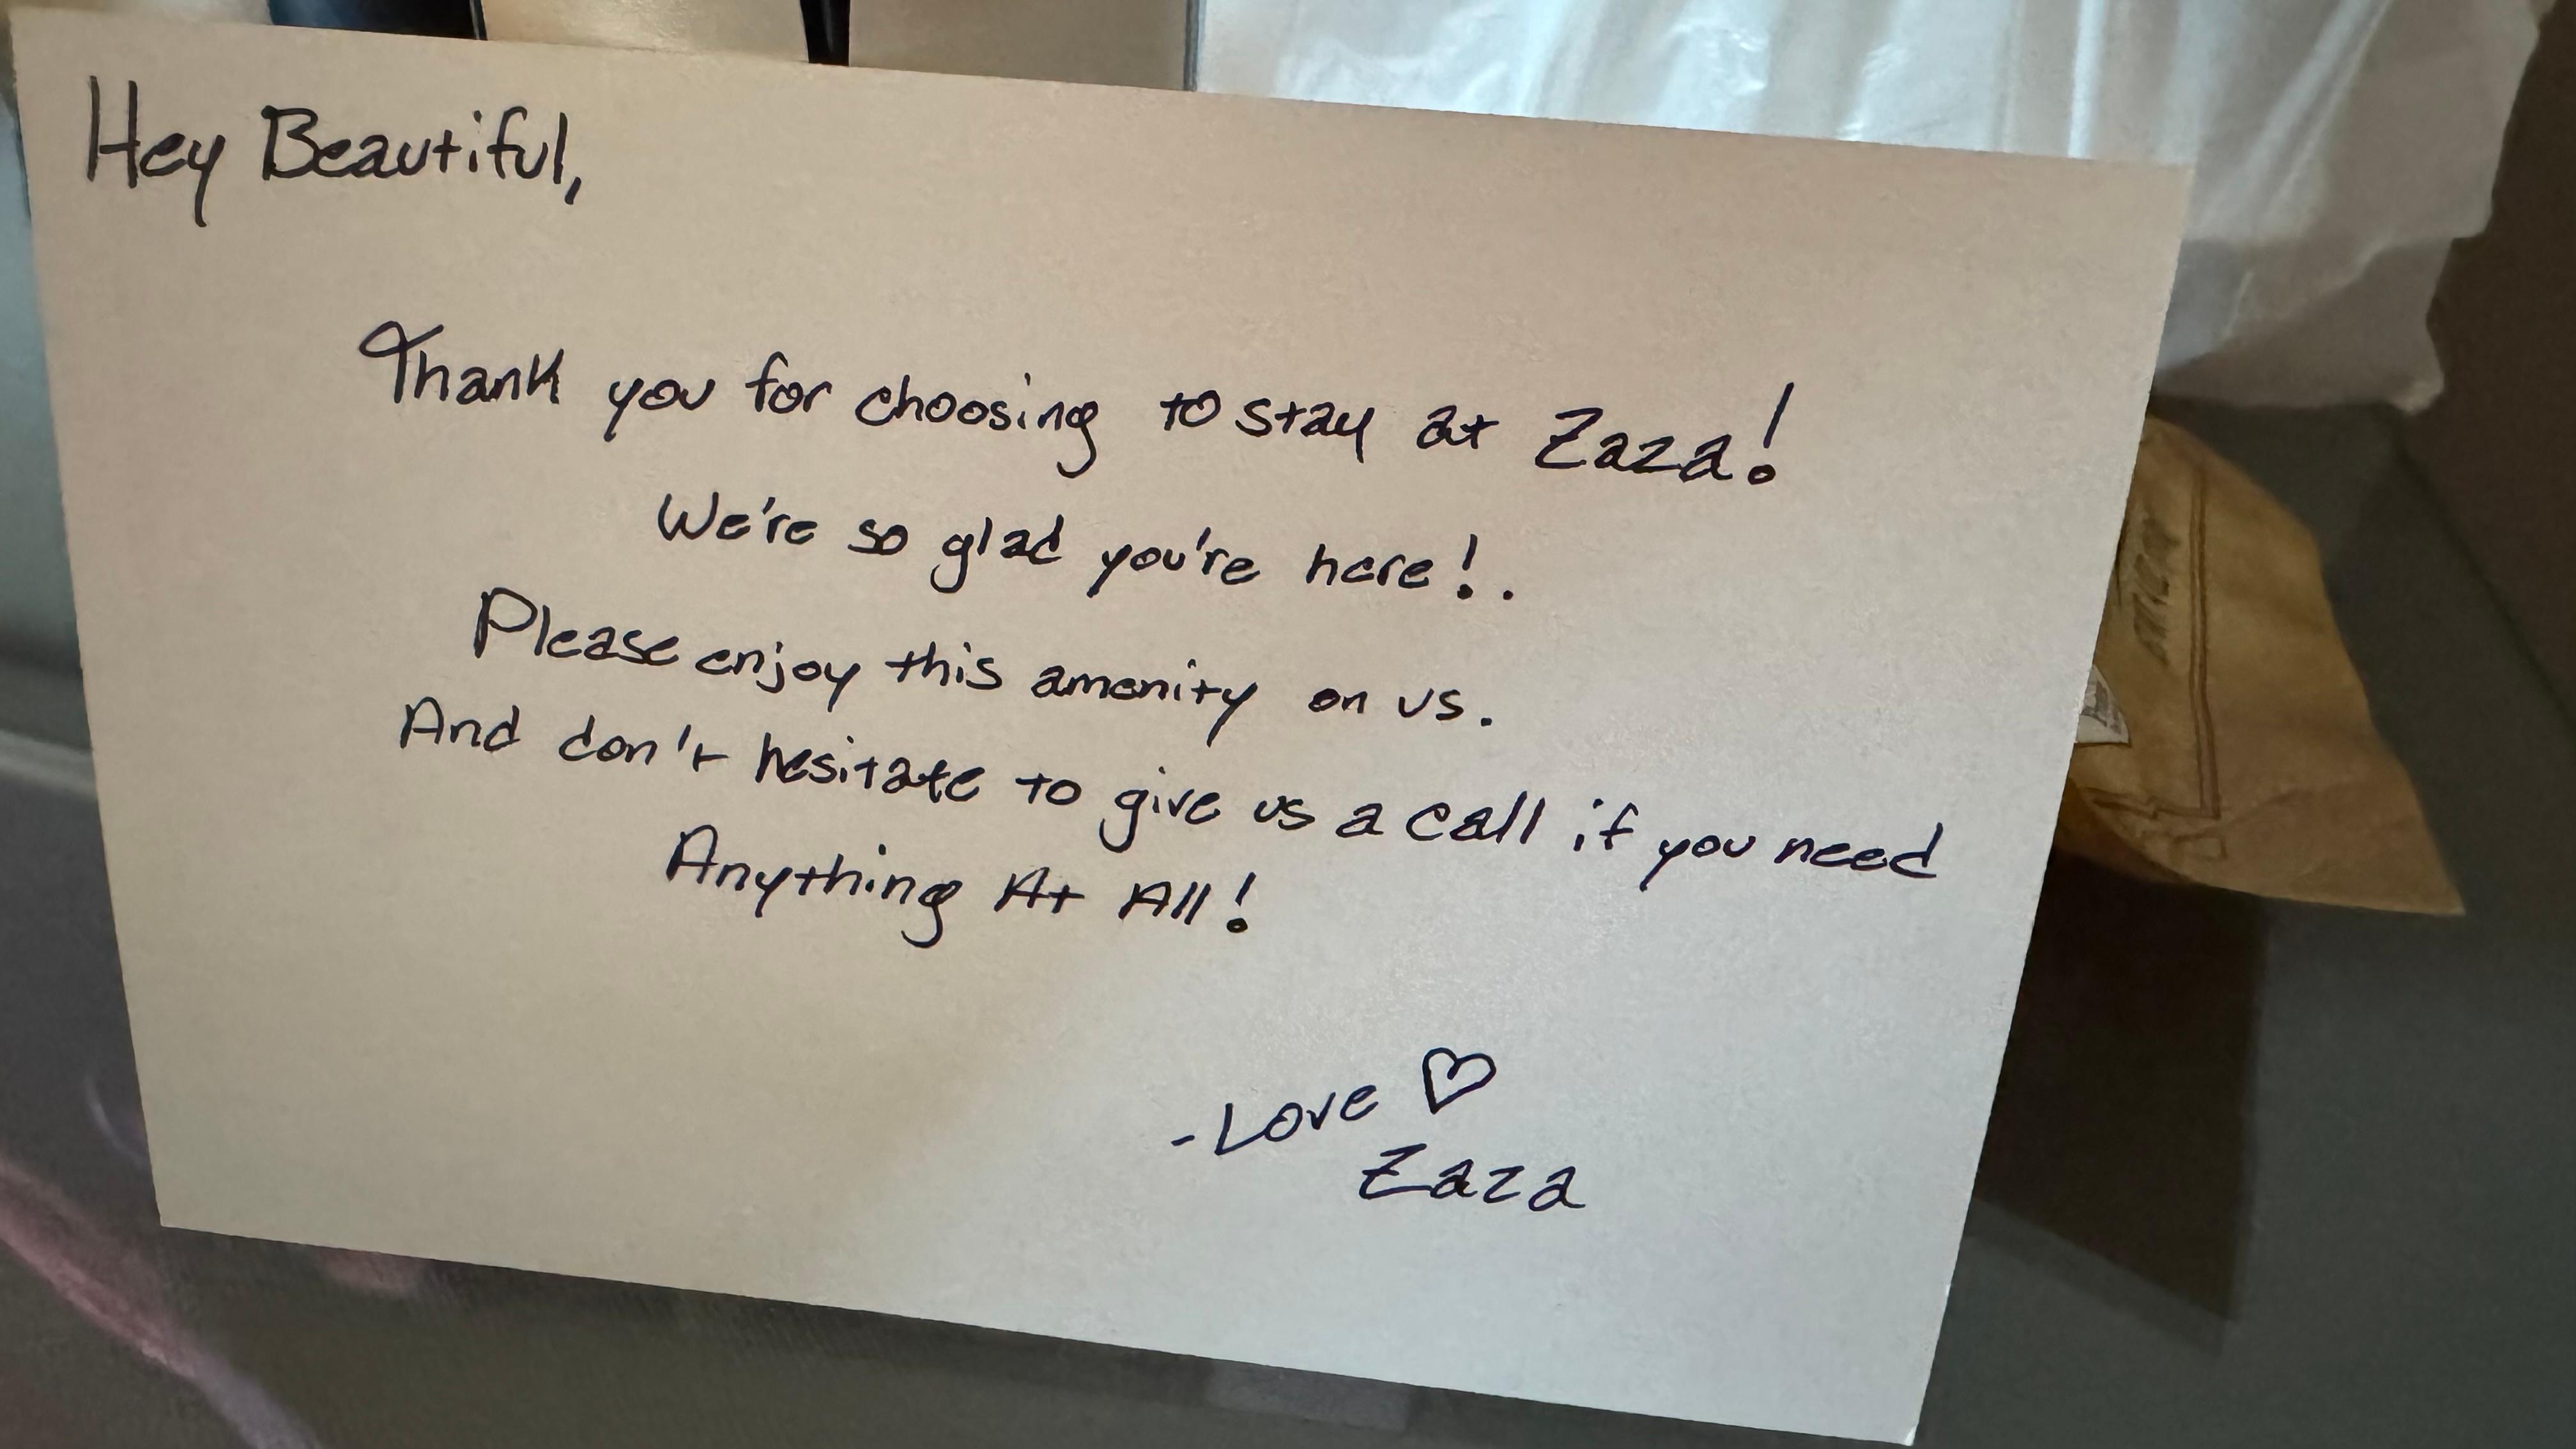 Hey Beautiful,
Thank you for choosing to stay at Zaza!
We're so glad you're here!.
Please enjoy this amenity on us.
And don't hesitate to give us a call if you need
Anything At All!
- Love ♡
Zaza